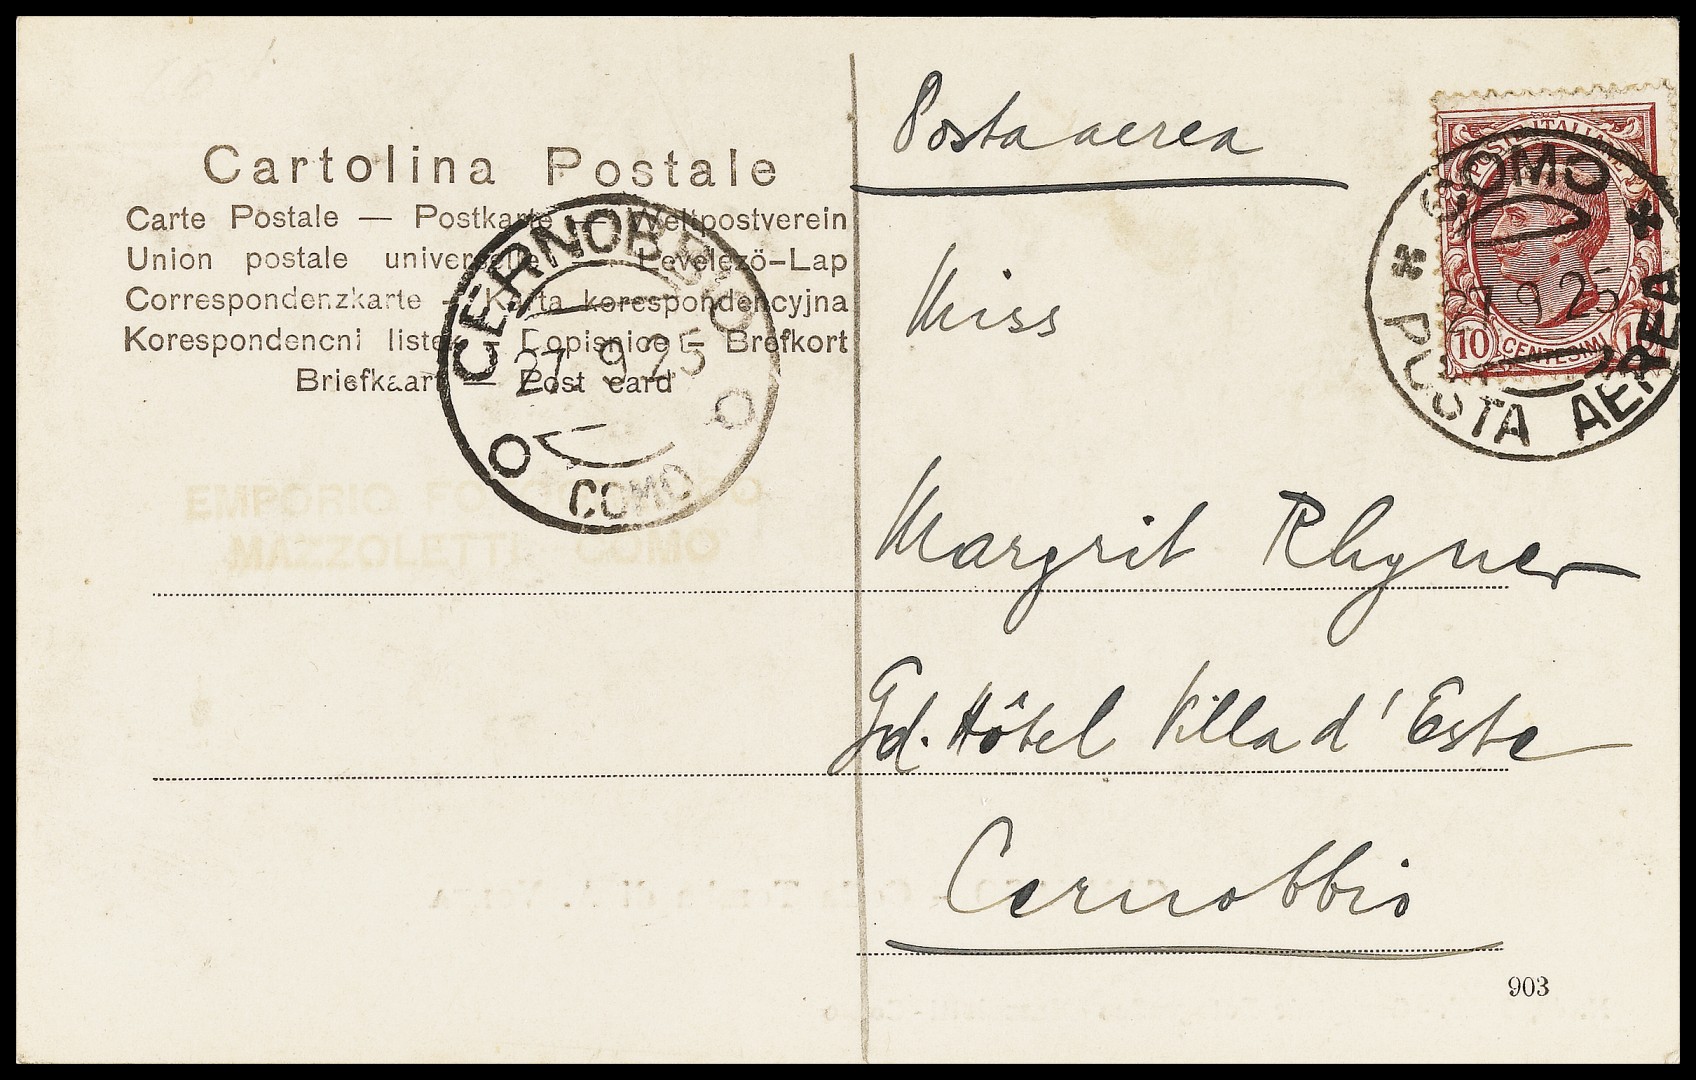 Cartolina Postale
Carte Postale — Postkarte — Weltpostverein
Union postale universelle — Levelezö-Lap
Correspondenzkarte — Karta korespondencyjna
Korespondencni listek — Dopisnice — Brefkort
Briefkaart — Post card
CERNOBBIO
27.9.25
COMO
EMPORIO
MAZZOLETTI COMO
Posta aerea
POSTE ITALIANE
COMO
27.9.25
POSTA AEREA
10 CENTESIMI 10
Miss
Margrit Rhyner
Gd. Hôtel Villa d'Este
Cernobbio
903